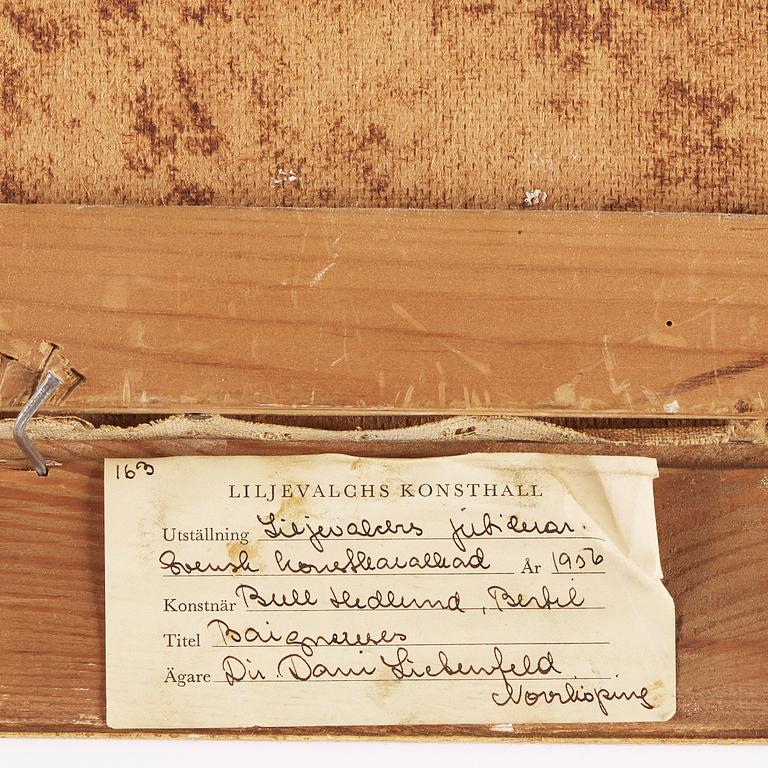 163
LILJEVALCHS KONSTHALL
Utställning Liljevalchs jubilerar.
Svensk konstkavalkad År 1956
Konstnär Bull Hedlund, Bertil
Titel Baigneuses
Ägare Dir. Dani Lichenfeld
Norrköping